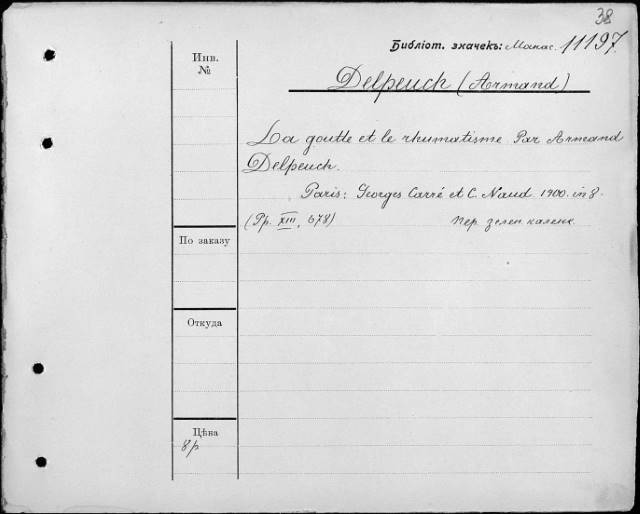 38
Библіот. значекъ: Манас. 11197.
Инв.
№
Delpeuch (Armand)
La goutte et le rhumatisme Par Armand
Delpeuch.
Paris: Georges Carré et C. Naud 1900. in 8.
(Pp. XIII, 678) Пер. зелен каленк
По заказу
Откуда
Цѣна
8р